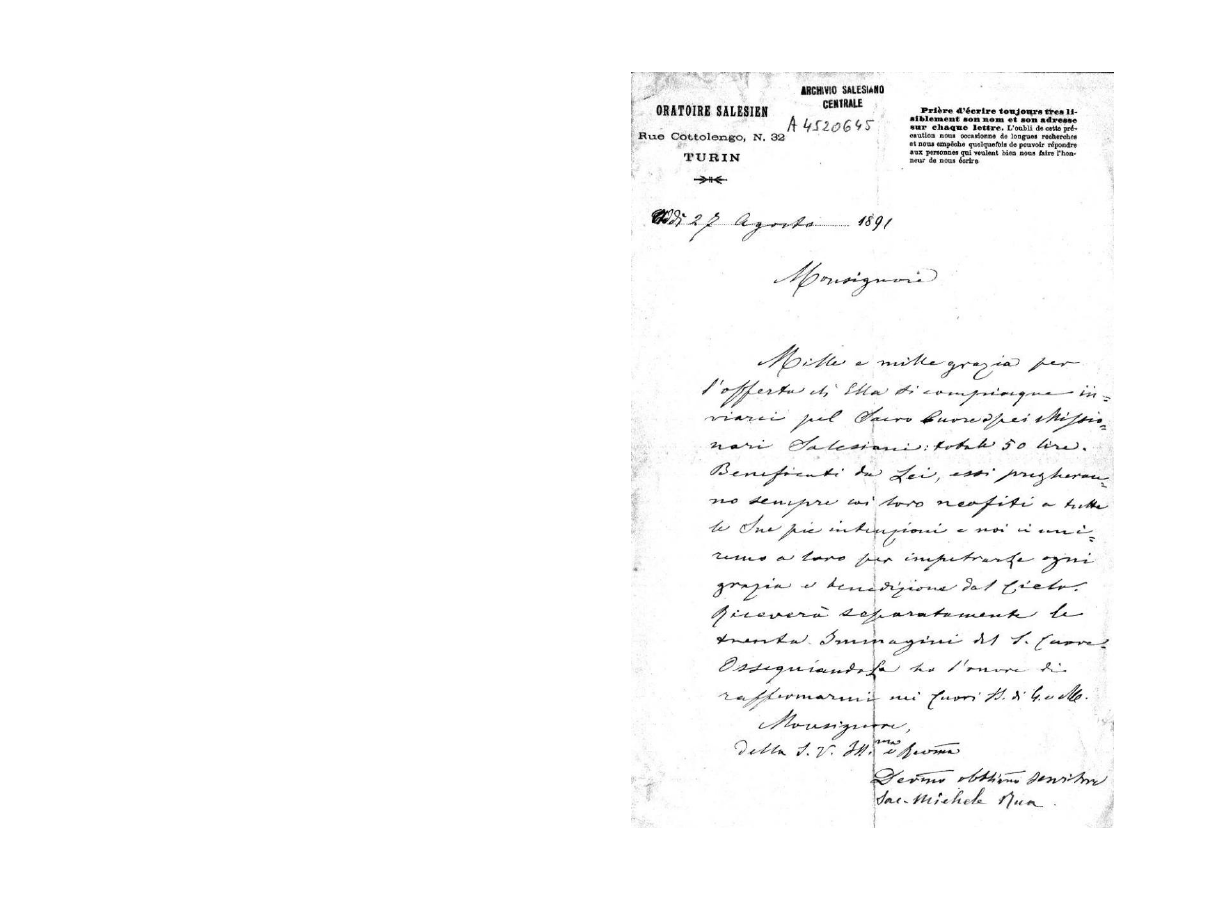 ORATOIRE SALESIEN
Rue Cottolengo, N. 32
TURIN
ARCHIVIO SALESIANO
CENTRALE
A 4520645
Prière d'écrire toujours tres li-
siblement son nom et son adresse
sur chaque lettre. L'oubli de cette pré-
caution nous occasionne de longues recherches
et nous empêche quelquefois de pouvoir répondre
aux personnes qui veulent bien nous faire l'hon-
neur de nous écrire
di 27 Agosto 1891
Monsignore
Mille e mille grazie per
l'offerta Ella si compiacque in=
viarci pel Sacro Cuore pei Missio=
nari Salesiani: totale 50 lire.
Beneficati da Lei, essi pregheran=
no sempre coi loro neofiti a tutte
le Sue pie intenzioni e noi ci uni=
remo a loro per impetrarle ogni
grazia e benedizione dal Cielo.
Riceverà separatamente le
trenta Immagini del S. Cuore.
Ossequiandola ho l'onore di
raffermarmi nei Cuori SS. di G. e M.
Monsignore,
della S. V. Ill.ma e Revma
Devmo obblmo servitore
Sac. Michele Rua.